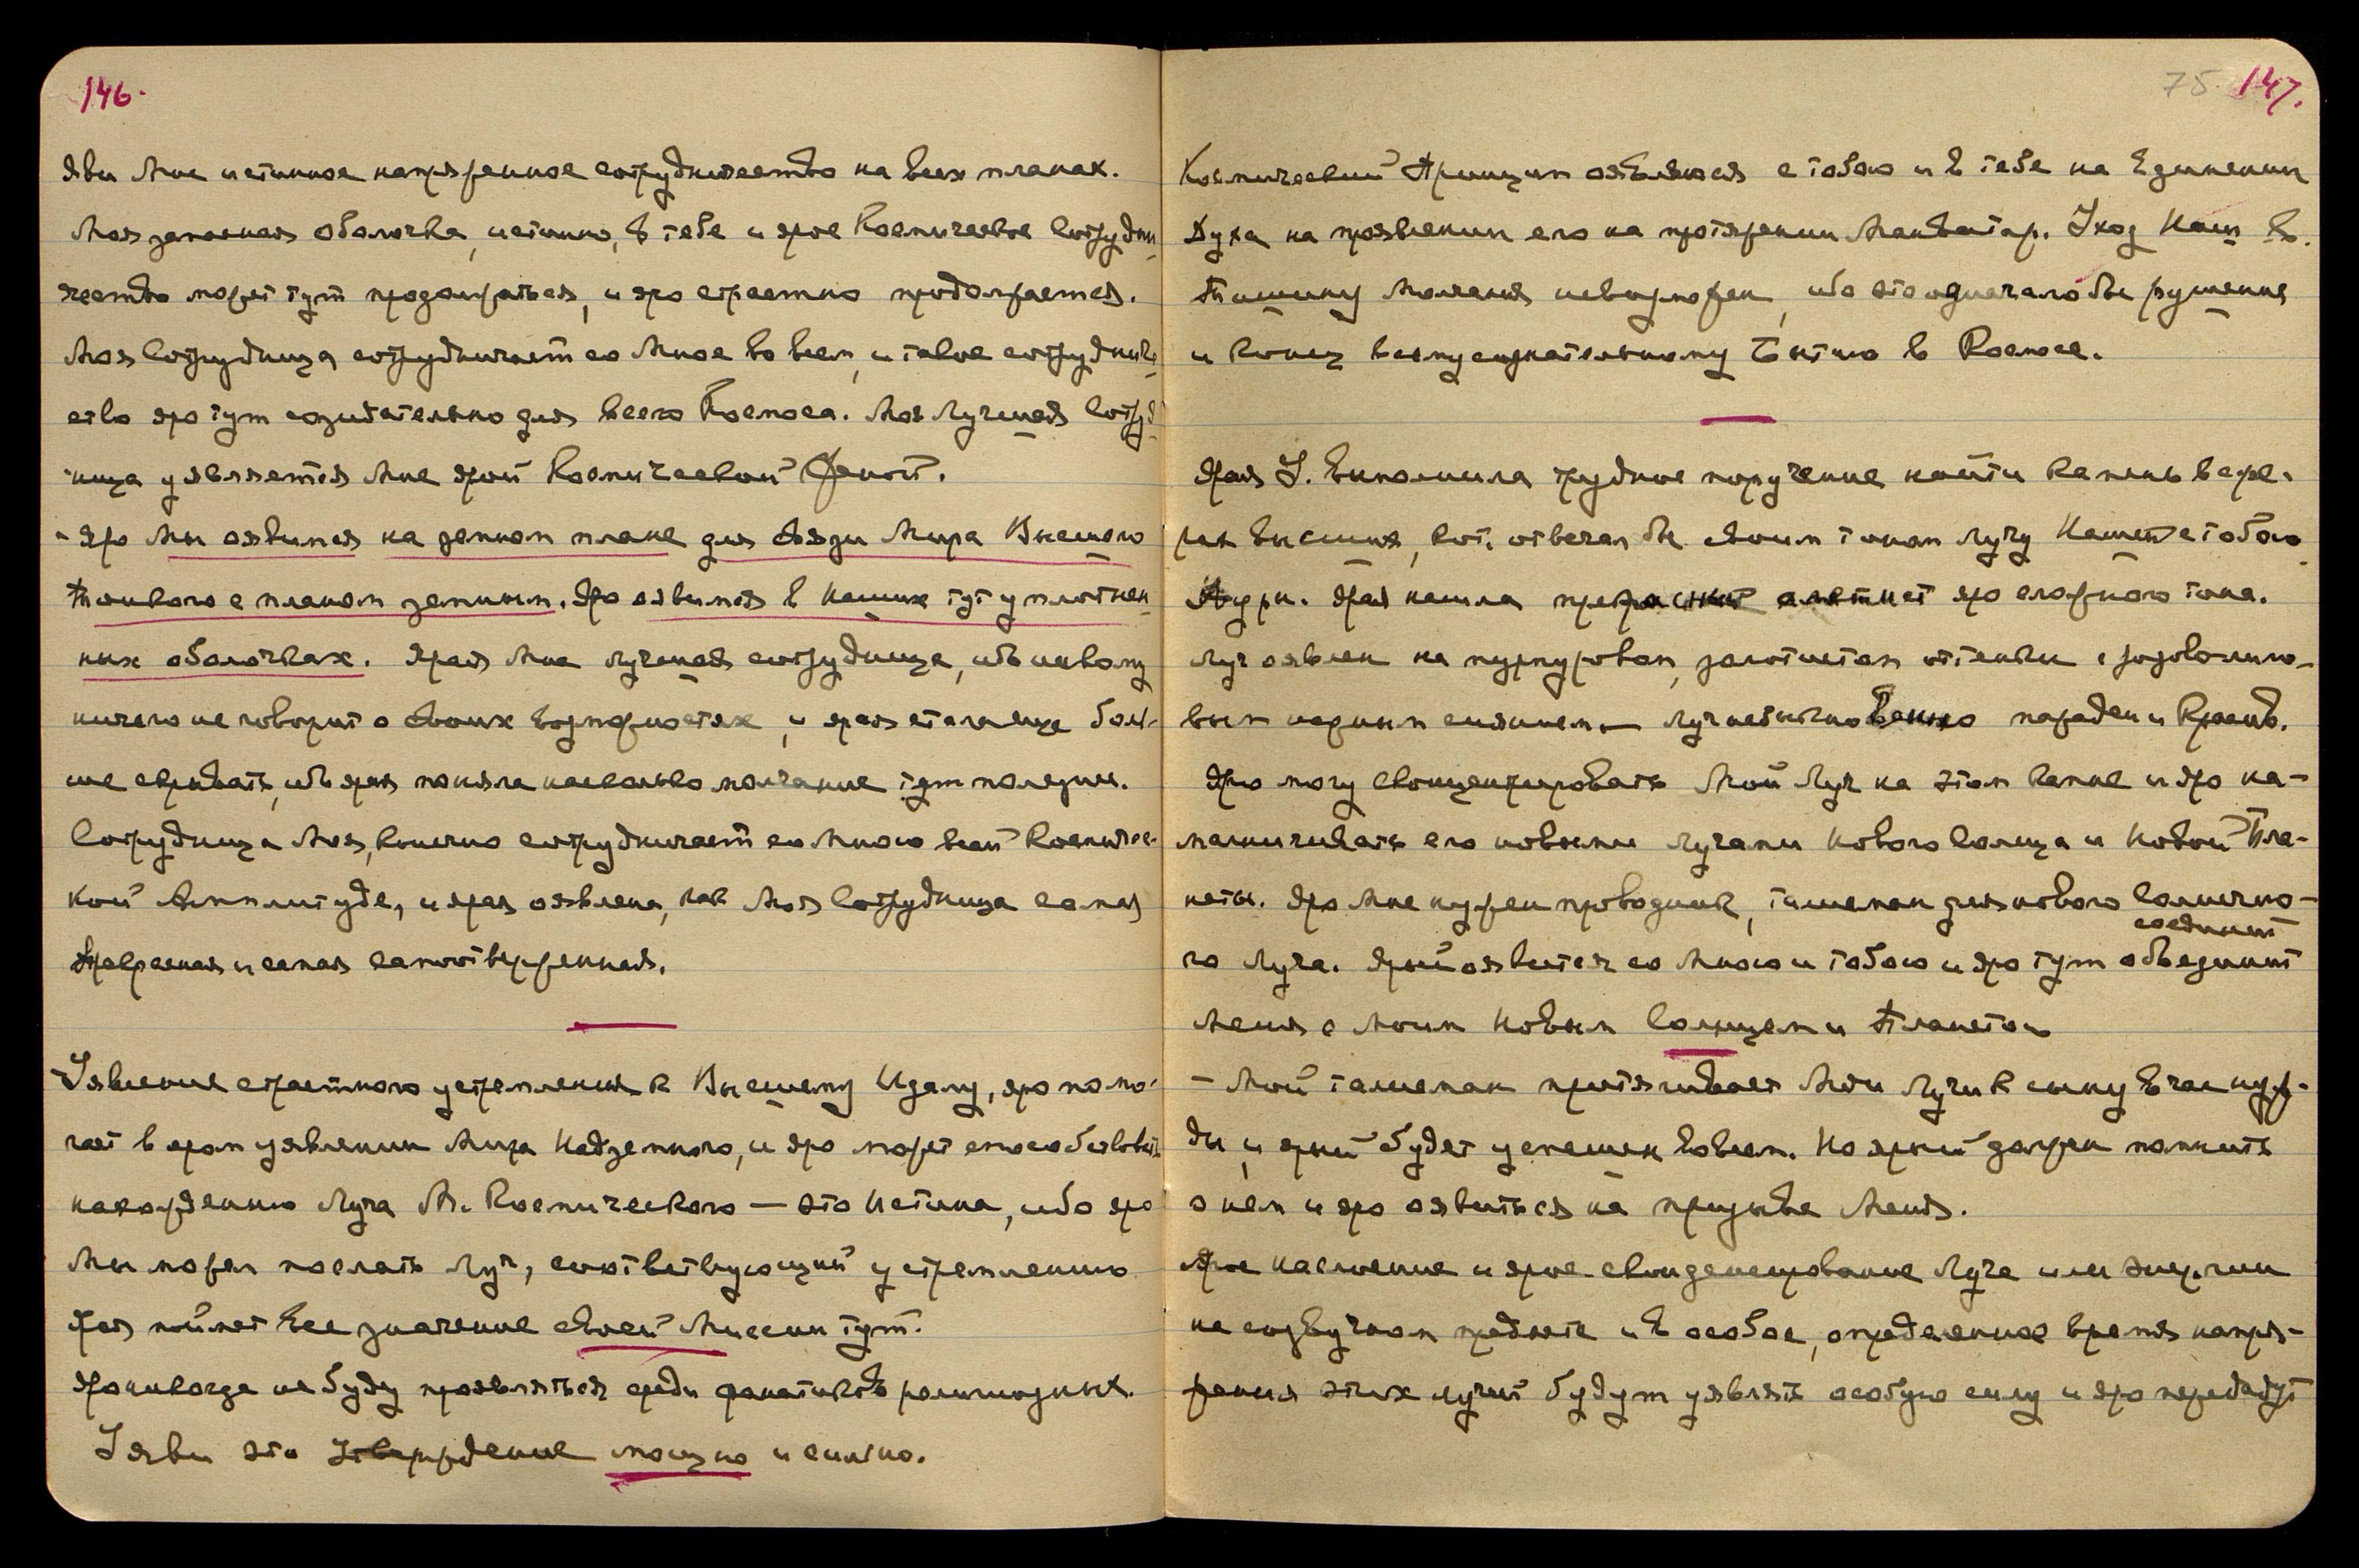 146.
Яви Мне истинное напряженное сотрудничество на всех планах.
Моя земная оболочка, истинно, в тебе и ярое Космическое Сотрудни
чество может тут продолжаться, и яро страстно продолжается.
Моя Сотрудница сотрудничает со Мною во всем, и такое сотрудниче
ство яро тут созидательно для всего Космоса. Моя Лучшая Сотруд
ница уявляется Мне ярой Космической Женой.
- Яро Мы оявимся на земном плане для связи Мира Высшего
Тонкого с планом земным. Яро оявимся в Наших тут уплотнен
ных оболочках. Ярая Мне лучшая сотрудница, ибо никому
ничего не говорит о своих возможностях, и ярая стала еще боль-
ше скрывать, ибо ярая поняла насколько молчание тут полезно.
Сотрудница Моя, конечно сотрудничает со Мною всей Космичес-
кой Амплитуде, и ярая оявлена, как Моя Сотрудница самая
Прекрасная и самая самоотверженная.
Уявление страстного устремления к Высшему Идеалу, яро помо-
гает в яром уявлении Мира Надземного, и яро может способствовать
нахождению Луча М. Космического — это Истина, ибо яро
Мы можем послать Луч, соответствующий устремлению
Ярая поймет все значение своей Миссии тут.
Яро никогда не буду проявляться среди фанатиков религиозных.
Уяви это утверждение мощно и сильно.
75 147.
Космический Принцип оявляюся с тобою и в тебе на Единении
Духа на проявлении его на протяжении Манвантар. Уход Наш в
Тишину Молчания невозможен, ибо это означало бы рушение
и конец всему сознательному Бытию в Космосе.
Ярая У. выполнила трудное поручение найти камень в сфе-
рах высших, кот. отвечал бы своим тоном Лучу Нашей с тобою
Ауры. Ярая нашла прекрасный аметист яро сложного тона.
Луч оявлен на пурпуровом, золотистом оттенке с розоволило-
вым нежным сиянием — Луч необыкновенно наряден и красив.
Яро могу сконцентрировать Мой Луч на этом камне и яро на-
магничивать его новыми лучами Нового Солнца и Новой Пла-
неты. Яро Мне нужен проводник, талисман для нового Солнечно-
соединит
го Луча. Ярый оявится со Мною и тобою и яро тут объединит
Меня с Моим Новым Солнцем и Планетою
- Мой талисман притягивает Мои Лучи к сыну в час нуж-
ды и ярый будет успешен во всем. Но ярый должен помнить
о нем и яро оявиться на призыве Меня.
Ярое наслоение и ярое сконденсирование Луча или энергии
на созвучном предмете и в особое, определенное время напря-
жения этих лучей будут уявлять особую силу и яро передадут